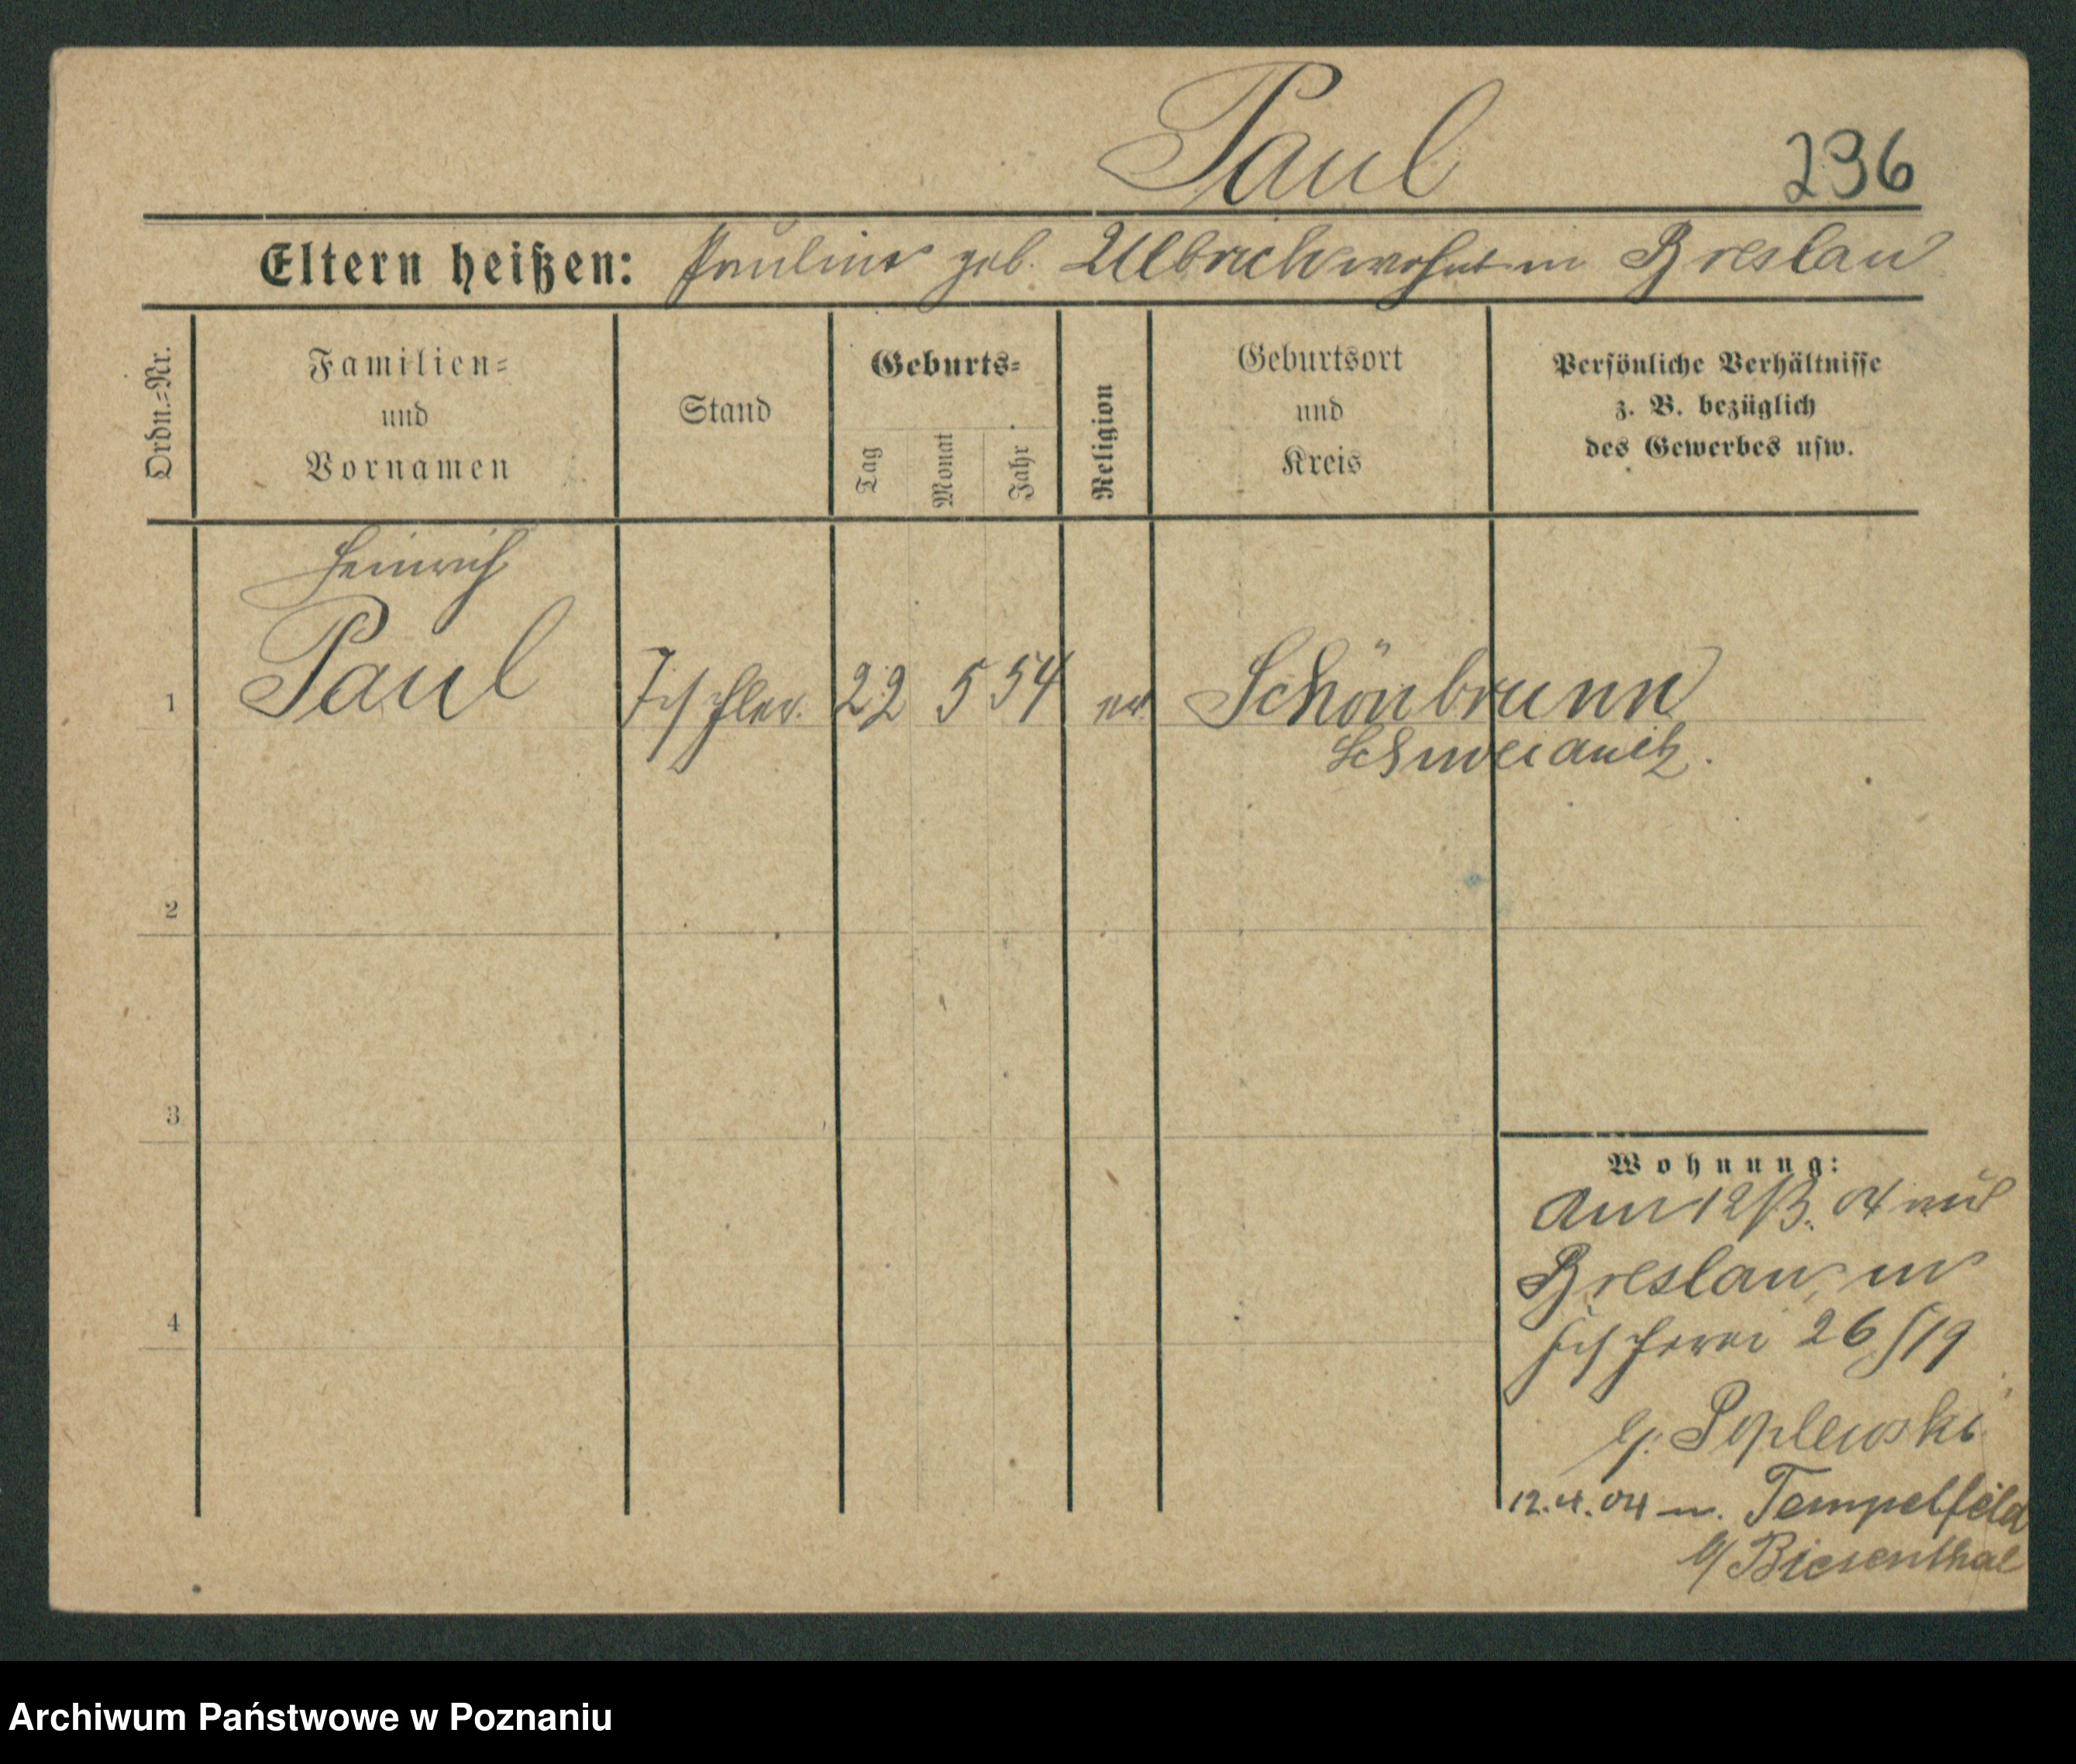 Paul 236
Eltern heißen: Pauline geb. Ulbrich wohnt in Breslau
Ordn.=Nr.
Familien=
und
Vornamen
Stand
Geburts=
Tag
Monat
Jahr
Religion
Geburtsort
und
Kreis
Persönliche Verhältnisse
z. B. bezüglich
des Gewerbes usw.
Heinrich
1 Paul Tischler. 22 5 54 ev. Schönbrunn
2
3
4
Wohnung:
Am 12/3. 04 aus
Breslau, in
Fischerei 26/19
b/. Poplewski
12.4.04 n. Tempelfeld
b/ Biesenthal
Archiwum Państwowe w Poznaniu